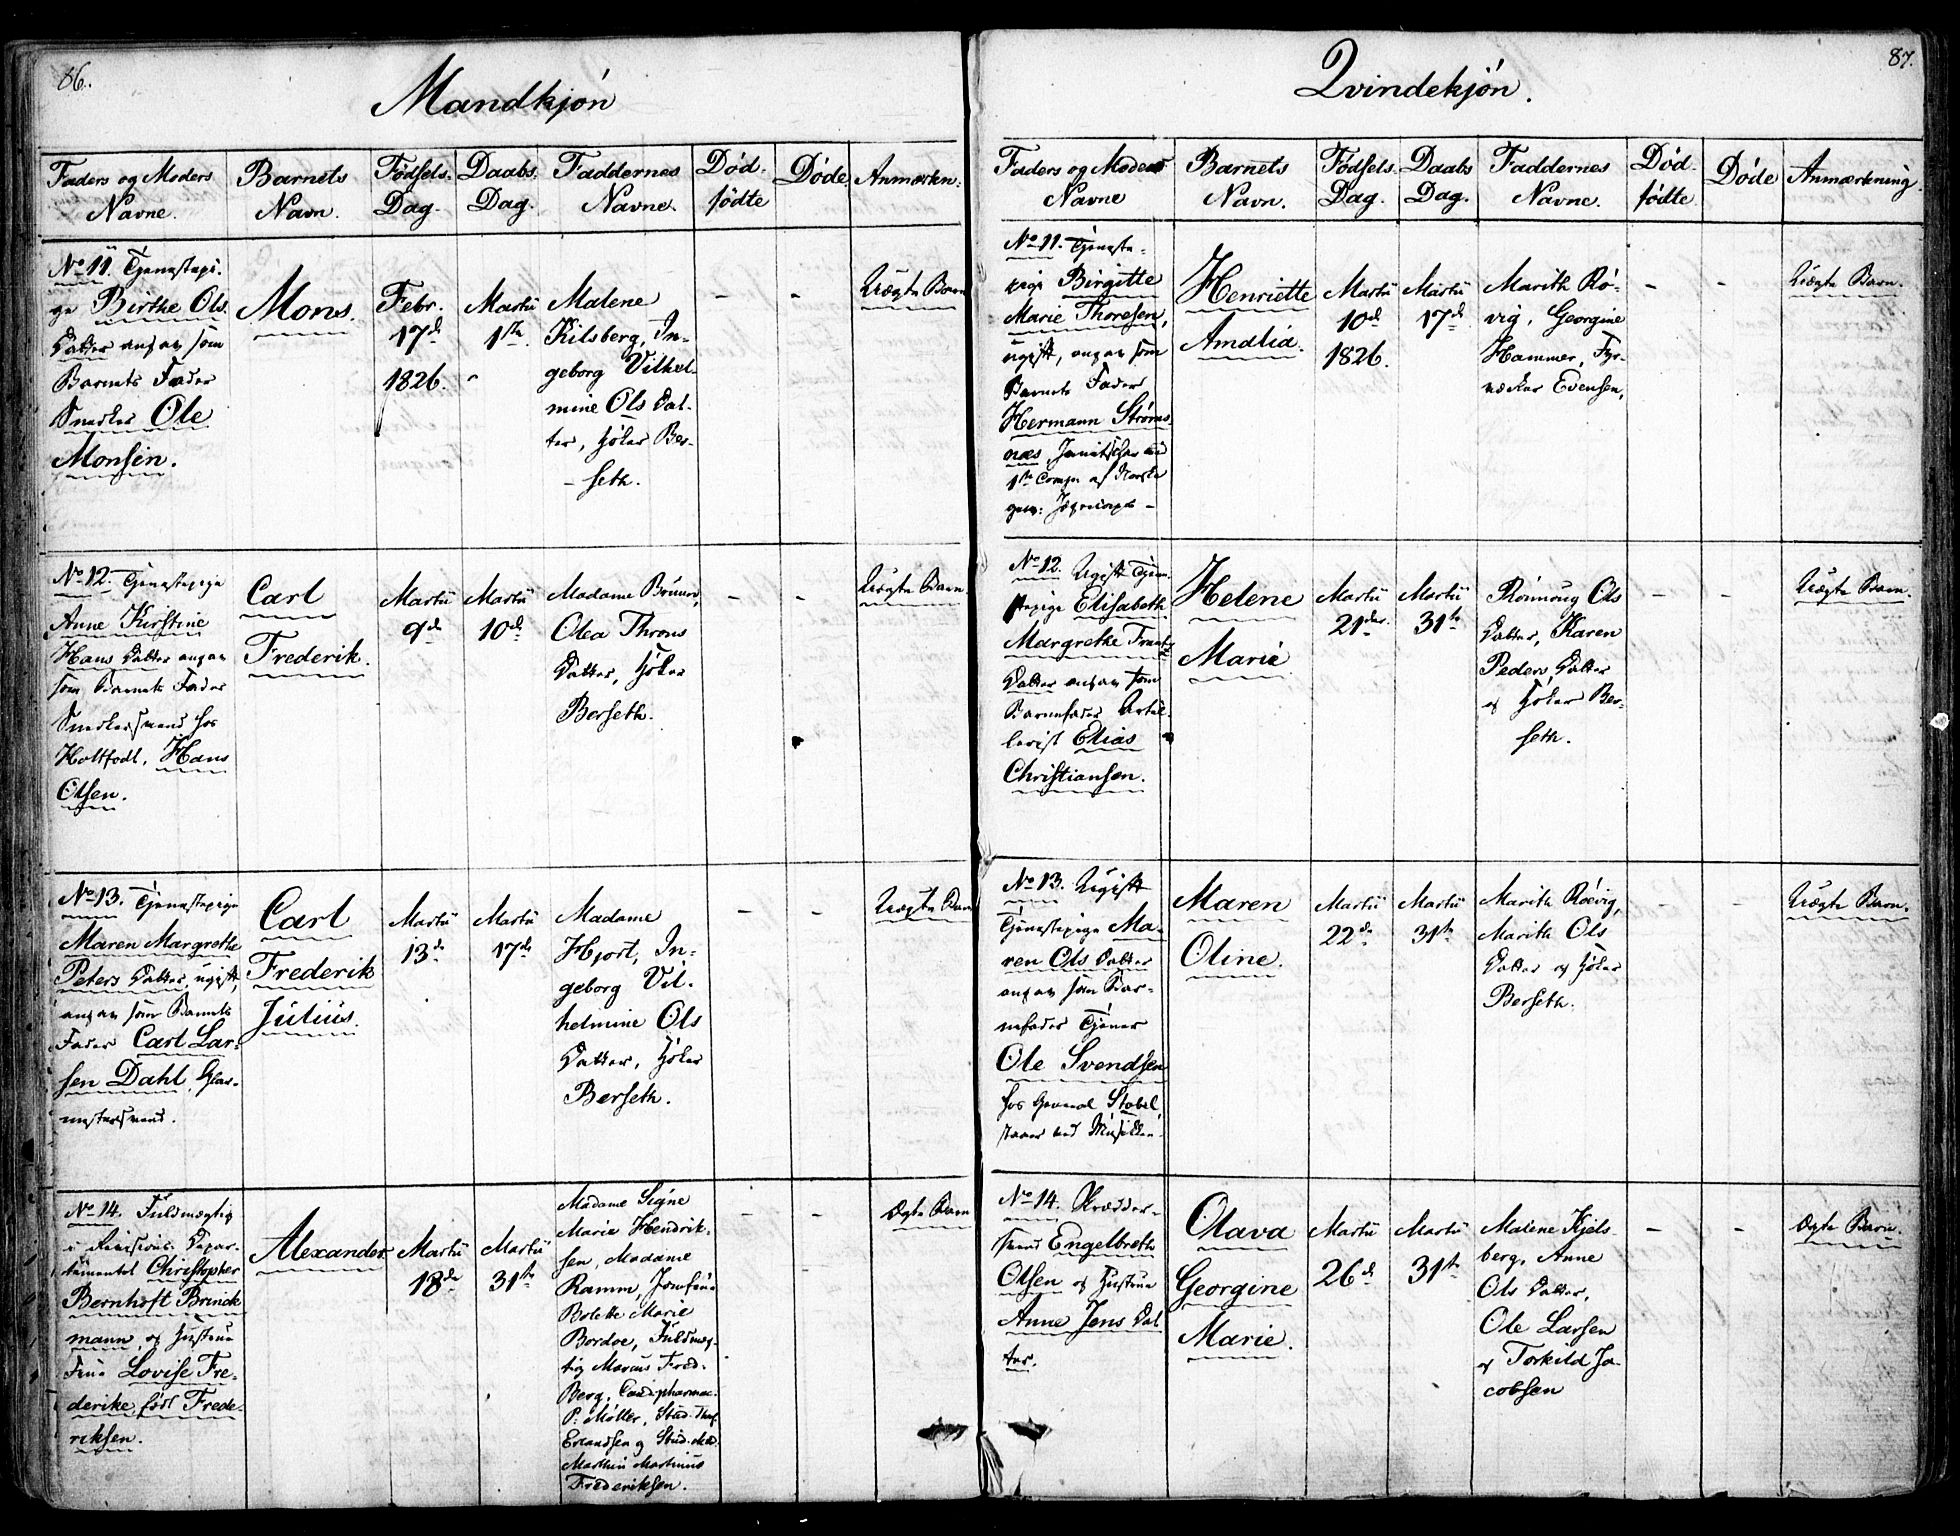 86.
Mandkjön
Faders og Moders
Navne.
Barnets
Navn.
Födsels-
Dag.
Daabs-
Dag.
Faddernes
Navne.
Död-
födte
Döde
Anmærkn:
No 11. Tjenestepi-
ge Birthe Ols
Datter angav som
Barnets Fader
Snedker Ole
Monsen.
Mons.
Febr.
17d
1826.
Martii
1ste
Malene
Kilsberg, In-
geborg Vilhel-
mine Ols Dat-
ter, Höker Ber-
seth.
- -
Uægte Barn
No 12. Tjenestepige
Anne Kirstine
Hans Datter angav
som Barnets Fader
Snedkersvend hos
Holtfodt, Hans
Olsen.
Carl
Frederik.
Martii
9de
Martii
10de
Madame Bruun,
Olea Throns
Datter, Höker
Berseth.
- -
Uægte Barn
No 13. Tjenestepige
Maren Margrethe
Peters Datter, ugift,
angav som Barnets
Fader Carl Lar-
sen Dahl, Glar-
mestersvend.
Carl
Frederik
Julius.
Martii
13de
Martii
17de
Madame
Hjort, In-
geborg Vil-
helmine Ols
Datter, Höker
Berseth.
- -
Uægte Barn
No 14. Fuldmægtig
i Revisions-Depar-
tementet Christopher
Bernhoft Brinck
mann, og Hustrue
Frue Lovise Fre-
derike, født Frede-
riksen.
Alexander
Martii
18de
Martii
31te
Madame Signe
Marie Hendrik-
sen, Madame
Ramm, Jomfrue
Bolette Marie
Bordoe, Fuldmæg-
tig Marcus Fred.
Berg, Cand. pharmac.
P. Möller, Stud.
Erlandsen og Stud. Med.
Marthin Martinius
Frederiksen.
- -
Ægte Barn
87.
Qvindekjön.
Faders og Moders
Navne
Barnets
Navn.
Födsels
Dag.
Daabs
Dag.
Faddernes
Navne.
Död-
födte
Döde
Anmærkning.
No 11. Tjeneste-
pige Birgitte
Marie Thoresen,
ugift, angav som
Barnets Fader
Hermann Ströms-
næs, Janitschar ved
1ste Comp. af Norske
Jægercorps -
Henriette
Amalia.
Martii
10de
1826.
Martii
17de
Marith Rö-
vig, Georgine
Hammer, Fyr-
Evensen,
- -
Uægte Barn.
No 12. Ugift Tjene-
stepige Elisabeth
Margrethe Frantz
Datter angav som
Barnefader Artil-
lerist Elias
Christiansen.
Helene
Marie
Martii
21de
Martii
31te
Rönnoug Ols
Datter, Karen
Peders Datter
og Höker Ber-
seth.
- -
Uægte Barn.
No 13. Ugift
Tjenestepige Ma-
ren Ols Datter
angav som Bar-
nefader Tjener
Ole Svendsen
hos General Stabel,
staaer ved Musikken.
Maren
Oline.
Martii
22de
Martii
31te
Marith Röevig,
Marith Ols
Datter og Höker
Berseth.
- -
Uægte Barn.
No 14. Skrædder-
svend Engelbreth
Olsen og Hustrue
Anne Jens Dat
ter.
Olava
Georgine
Marie.
Martii
26de
Martii
31te
Malene Kjels-
berg, Anne
Ols Datter,
Ole Larsen
og Torkild Ja-
cobsen
- -
Ægte Barn.